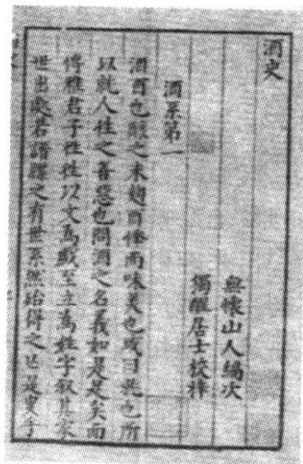 酒史
無懷山人編次
獨醒居士校梓
酒系第一
酒酉也釀之米麹酉懌而味美也或曰就也所
以就人性之善惡也問酒之名義如是足矣而
博雅君子往往以文為戲至立為姓字叙其家
世出處若譜牒之有世系然殆得之